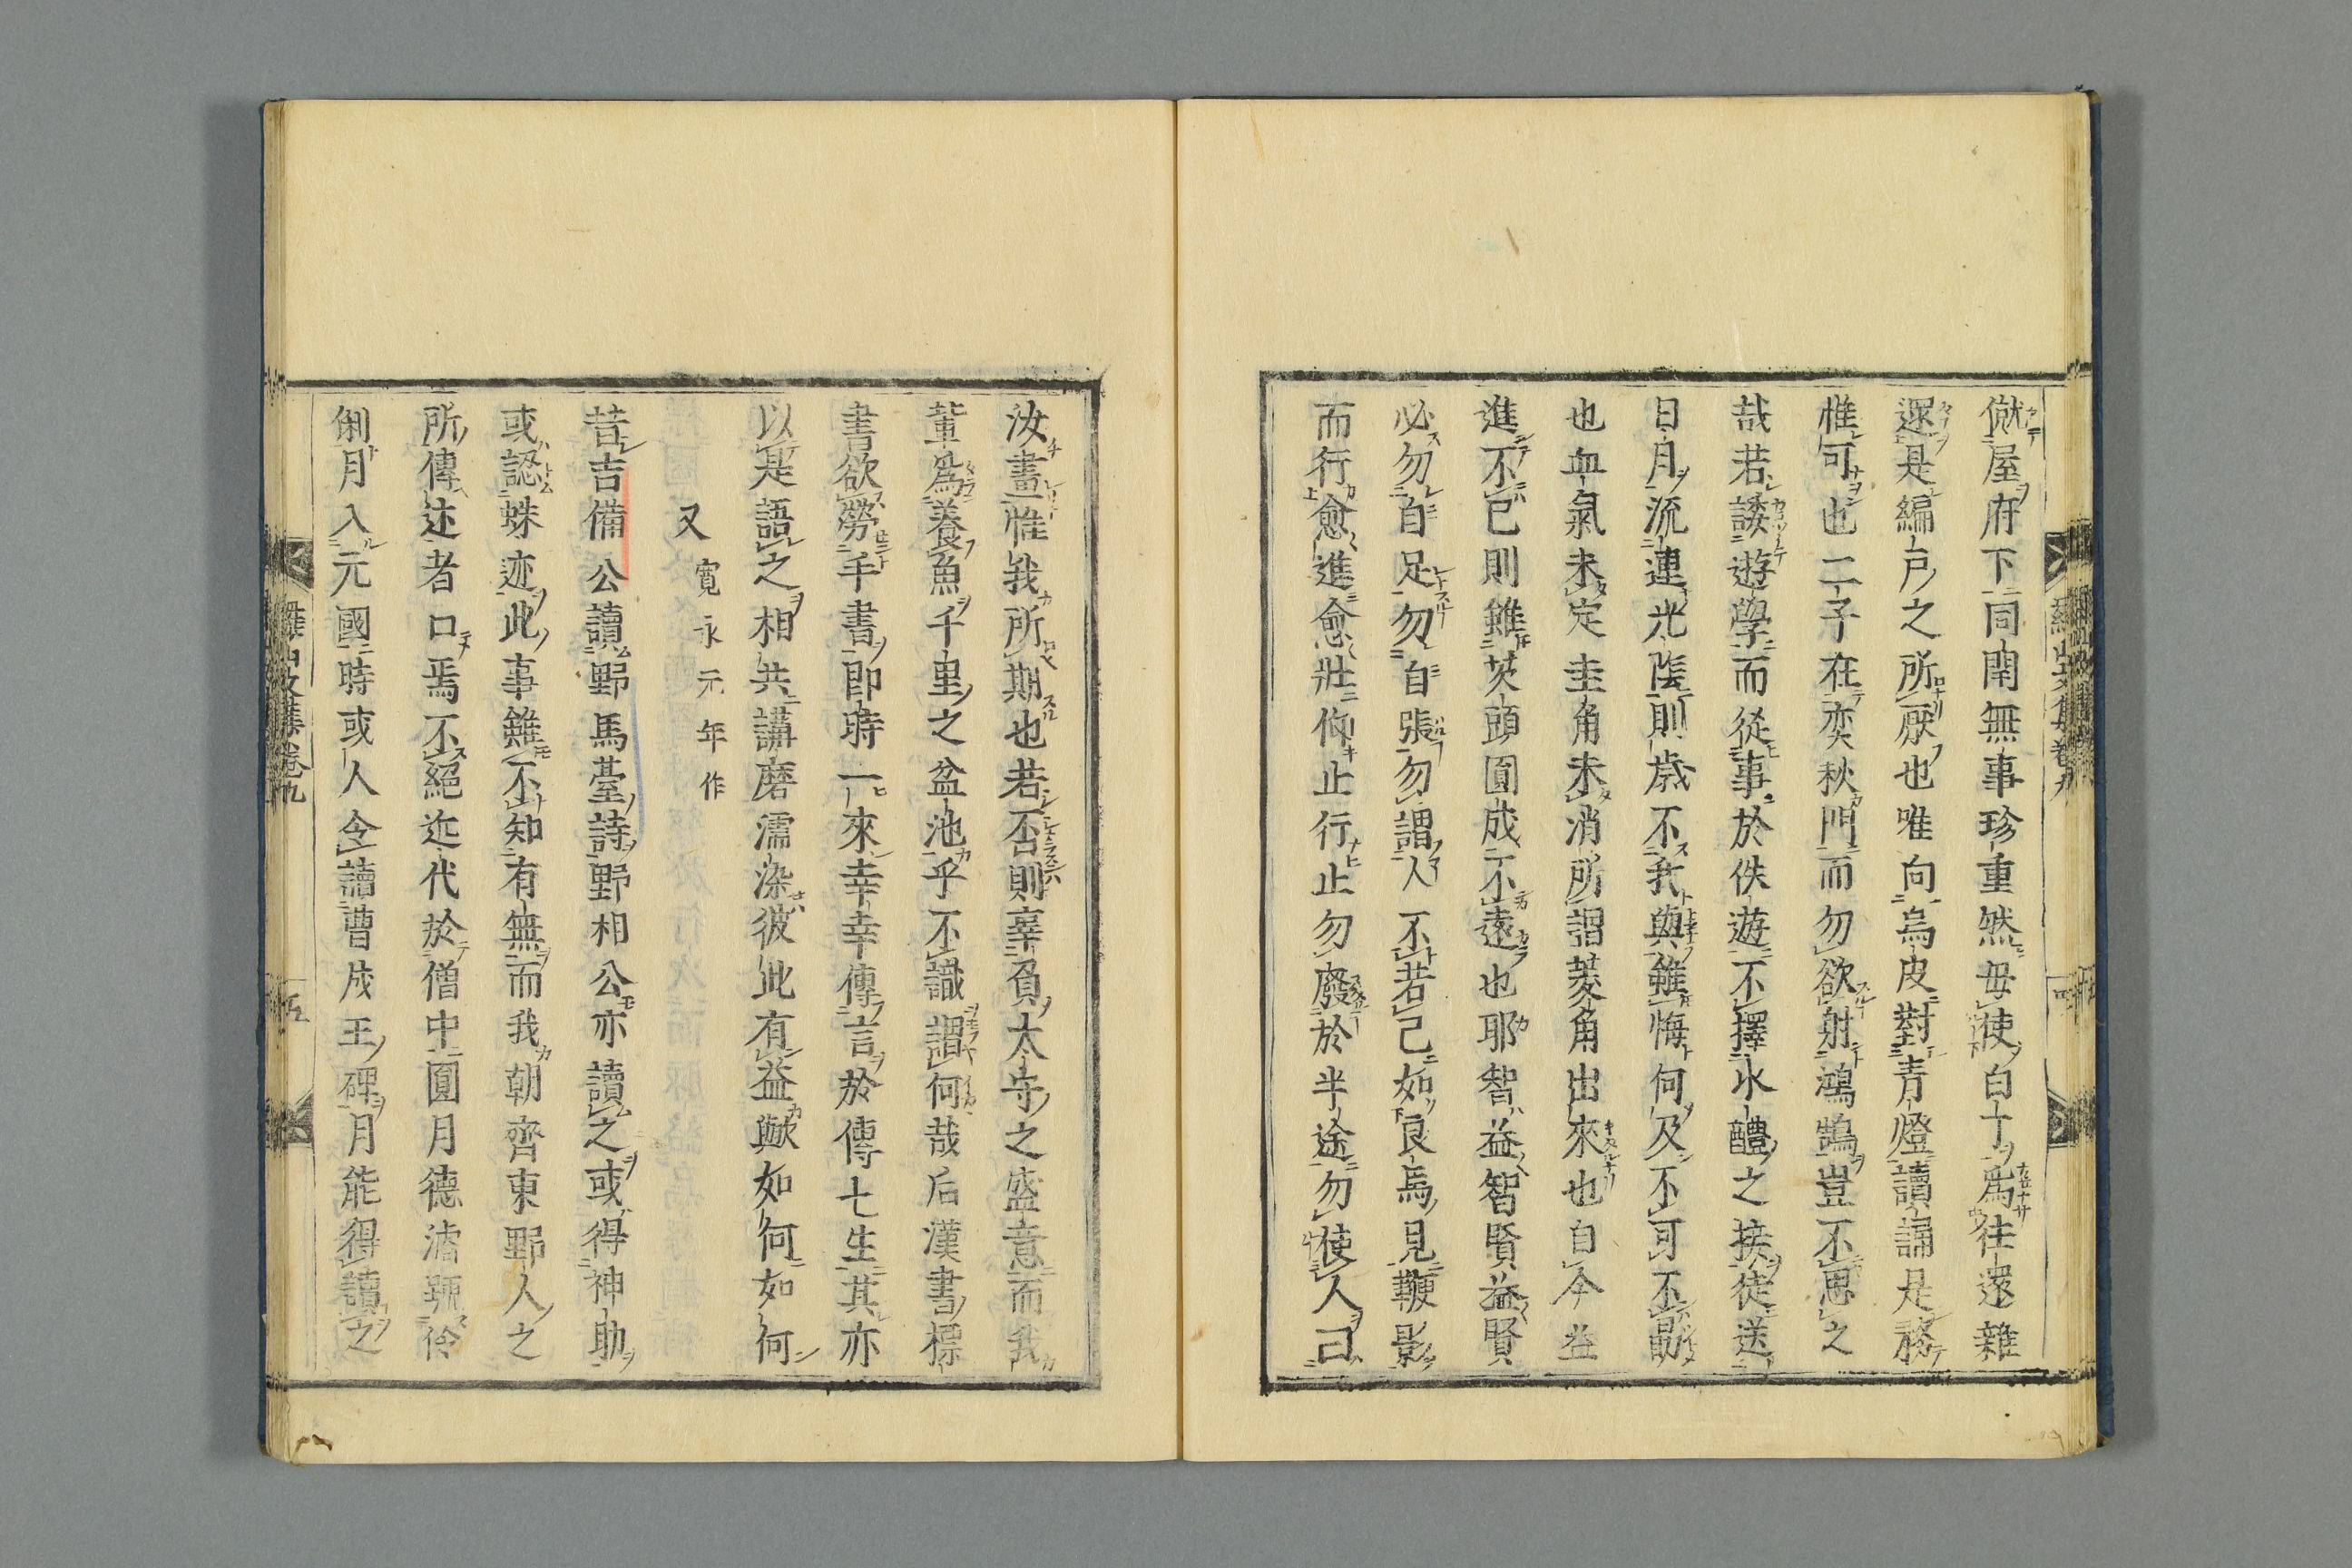 僦屋府下同閈無事珍重然毋使白丁爲往還雜
還是編戶之所厭也唯向烏皮對青燈讀誦是務
惟可也二子在奕秋門而勿欲射鴻鵠豈不思之
哉若諉遊學而從事於佚遊不擇水醴之接徒送
日月流連光陰則歲不我與雖悔何及不可不勗
也血氣未定圭角未消所謂菱角出來也自今益
進不已則雖茨頭圓成不遠也耶智益智賢益賢
必勿自足勿自張勿謂人不若己如良馬見鞭影
而行愈進愈壯仰止行止勿廢於半途勿使人己
汝畫惟我所期也若否則辜負太守之盛意而我
輩爲養魚千里之盆池乎不識謂何哉后漢書標
書欲勞手書卽時一來幸幸傳言於傳七生其亦
以是語之相共講磨濡染彼此有益歟如何如何
又 寬永元年作
昔吉備公讀野馬臺詩野相公亦讀之或得神助
或認蛛迹此事雖不知有無而我朝齊東野人之
所傳述者口焉不絕近代於僧中圓月德濬號伶
俐月入元國時或人令讀曹成王碑月能得讀之
羅山文集卷九
五